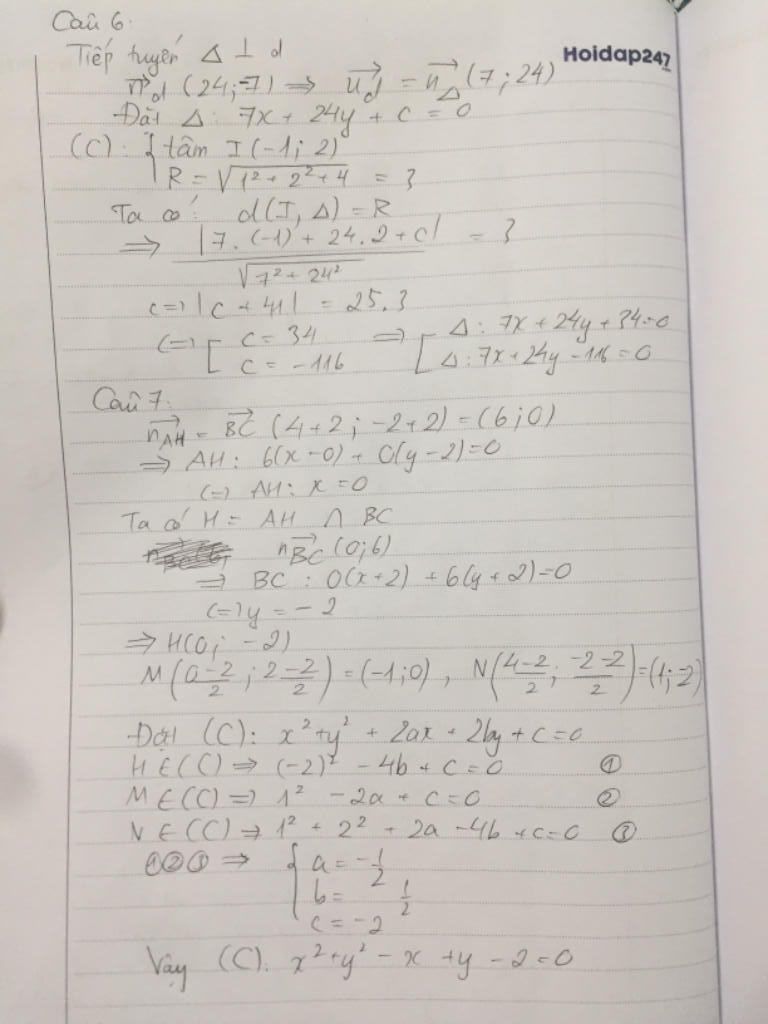 Câu 6:
Tiếp tuyến Δ ⊥ d
Hoidap247
n⃗_d (24; -7) => u⃗_d = n⃗_Δ (7; 24)
Đặt Δ: 7x + 24y + c = 0
(C): { tâm I(-1; 2)
R = √(1² + 2² + 4) = 3
Ta có: d(I, Δ) = R
=> |7.(-1) + 24.2 + c| / √(7² + 24²) = 3
<=> |c + 41| = 25.3
<=> [ c = 34 => [ Δ: 7x + 24y + 34 = 0
c = -116 Δ: 7x + 24y - 116 = 0
Câu 7:
n⃗_AH = BC⃗ (4+2; -2+2) = (6; 0)
=> AH: 6(x - 0) + 0(y - 2) = 0
<=> AH: x = 0
Ta có H = AH ∩ BC
n⃗_BC (0; 6)
=> BC: 0(x + 2) + 6(y + 2) = 0
<=> y = -2
=> H(0; -2)
M((0-2)/2; (2-2)/2) = (-1; 0), N((4-2)/2; (-2-2)/2) = (1; -2)
Đặt (C): x² + y² + 2ax + 2by + c = 0
H ∈ (C) => (-2)² - 4b + c = 0 ①
M ∈ (C) => 1² - 2a + c = 0 ②
N ∈ (C) => 1² + 2² + 2a - 4b + c = 0 ③
①②③ => { a = -1/2
b = 1/2
c = -2
Vậy (C): x² + y² - x + y - 2 = 0